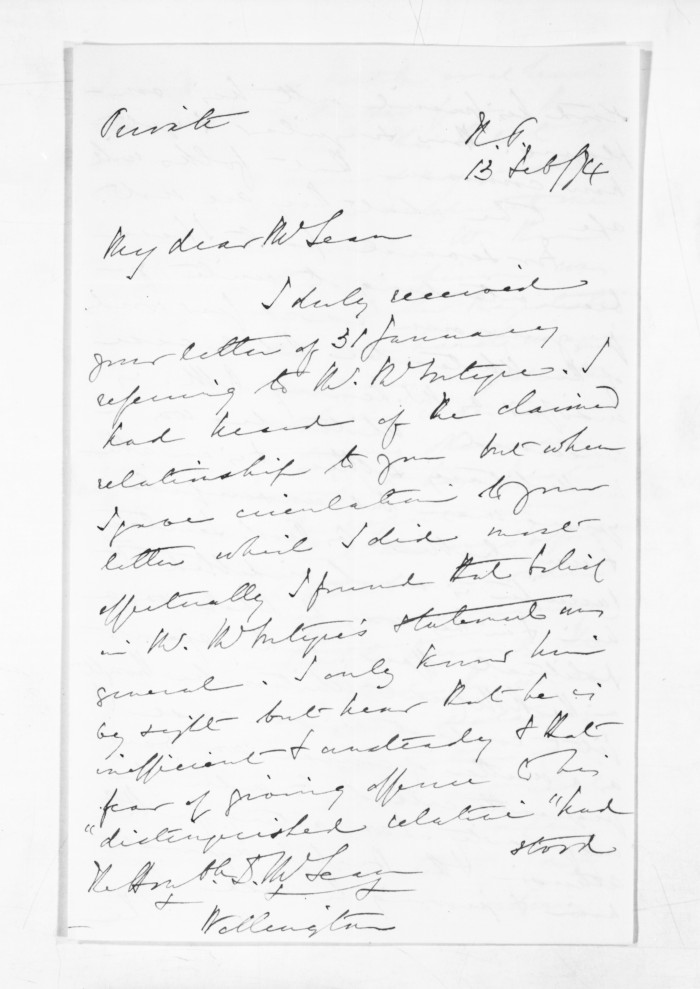 Private
N. P.
13 Feb/74
My dear McLean
I duly received
your letter of 31 January
referring to Mr. McIntyre. I
had heard of the claimed
relationship to you but when
I gave circulation to your
letter which I did most
effectually I found that belief
in Mr. McIntyre's statement was
general. I only know him
by sight but hear that he is
inefficient & unsteady & that
fear of giving offence to his
"distinguished relative" had
stood
The Honble. D. McLean
Wellington